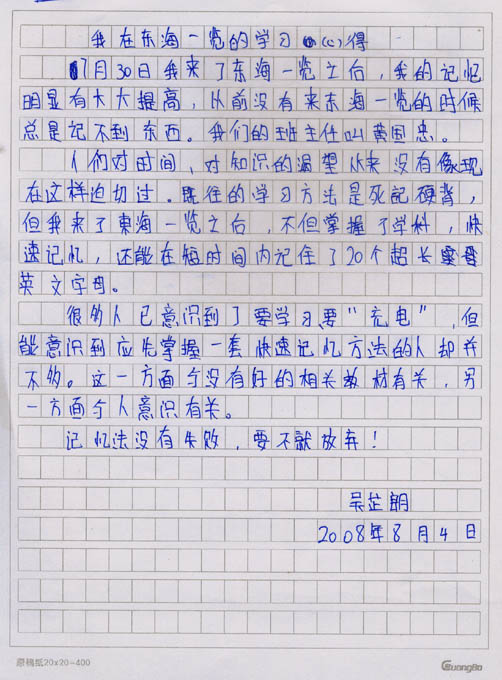 我在东海一览的学习心得
7月30日我来了东海一览之后，我的记忆
明显有大大提高，从前没有来东海一览的时候
总是记不到东西。我们的班主任叫黄国忠。
人们对时间，对知识的渴望从来没有像现
在这样迫切过。既往的学习方法是死记硬背，
但我来了東海一览之后，不但掌握了学科，快
速记忆，还能在短时间内记住了20个超长
英文字母。
很多人已意识到了要学习要“充电”，但
能意识到应先掌握一套快速记忆方法的人却并
不多。这一方面与没有好的相关教材有关，另
一方面与人意识有关。
记忆法没有失败，要不就放弃！
吴芷朗
2008年8月4日
原稿纸20x20-400
GuangBo